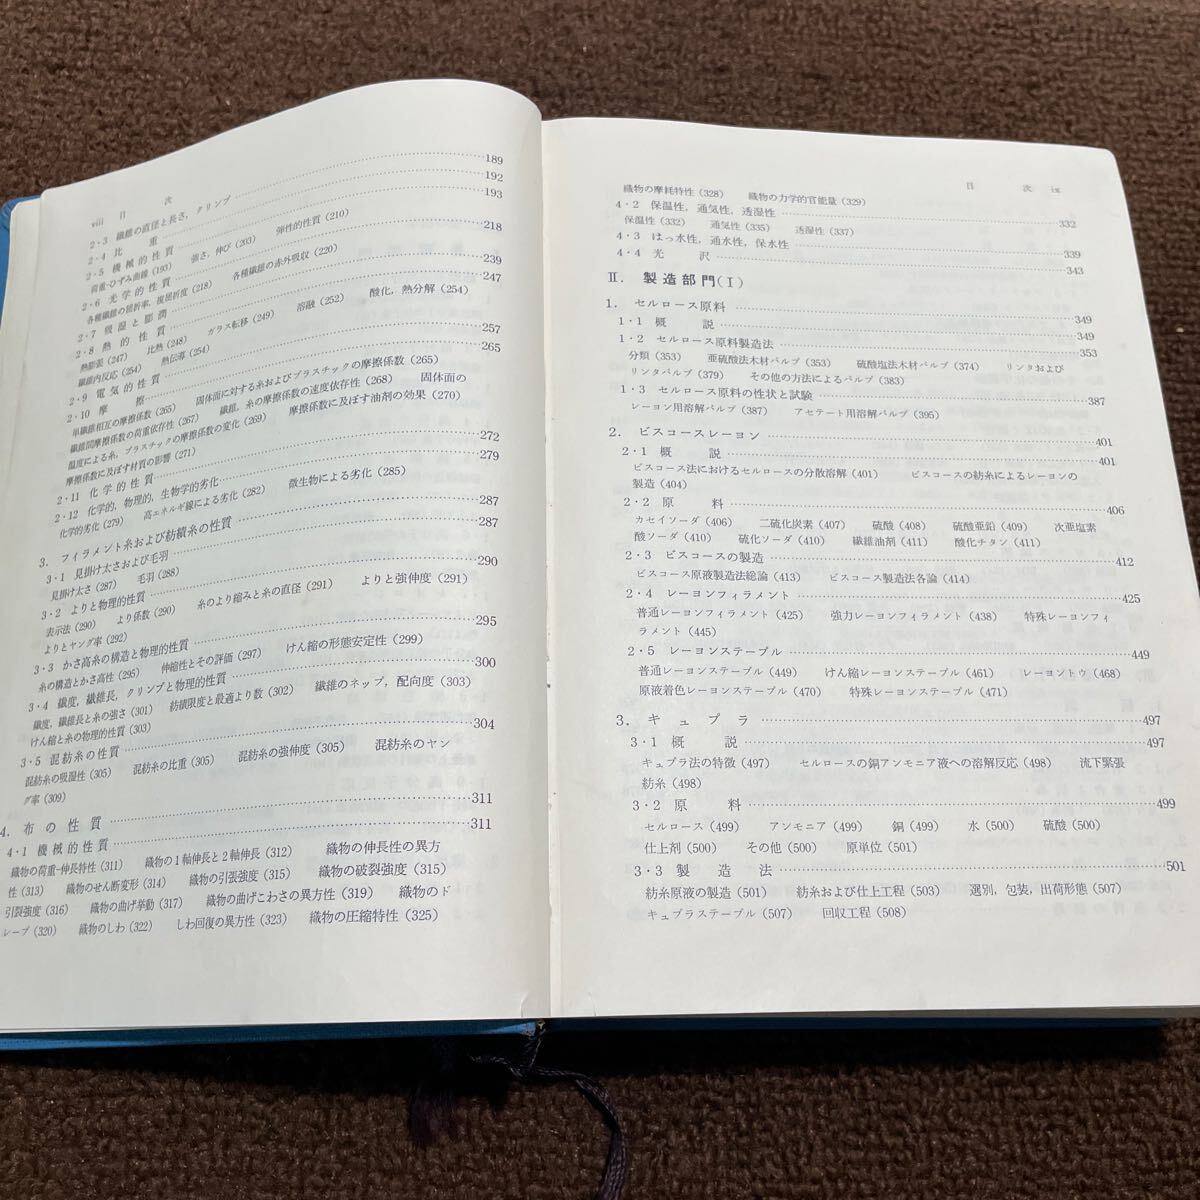 viii 目 次
2・3 繊維の直径と長さ，クリンプ 189
2・4 比重 192
2・5 機械的性質 193
荷重-ひずみ曲線(193) 強さ，伸び(203) 弾性的性質(210)
2・6 光学的性質 218
各種繊維の屈折率，複屈折度(218) 各種繊維の赤外吸収(220)
2・7 吸湿と膨潤 239
2・8 熱的性質 247
熱膨張(247) 比熱(248) ガラス転移(249) 溶融(252) 酸化，熱分解(254)
繊維内反応(254) 熱伝導(254)
2・9 電気的性質 257
2・10 摩擦 265
単繊維相互の摩擦係数(265) 固体面に対する糸およびプラスチックの摩擦係数(265)
繊維間摩擦係数の荷重依存性(267) 繊維，糸の摩擦係数の速度依存性(268) 固体面の
温度による糸，プラスチックの摩擦係数の変化(269) 摩擦係数に及ぼす油剤の効果(270)
摩擦係数に及ぼす材質の影響(271)
2・11 化学的性質 272
2・12 化学的，物理的，生物学的劣化 279
化学的劣化(279) 高エネルギ線による劣化(282) 微生物による劣化(285)
3. フィラメント糸および紡績糸の性質 287
3・1 見掛け太さおよび毛羽 287
見掛け太さ(287) 毛羽(288)
3・2 よりと物理的性質 290
表示法(290) より係数(290) 糸のより縮みと糸の直径(291) よりと強伸度(291)
よりとヤング率(292)
3・3 かさ高糸の構造と物理的性質 295
糸の構造とかさ高性(295) 伸縮性とその評価(297) けん縮の形態安定性(299)
3・4 繊度，繊維長，クリンプと物理的性質 300
繊度，繊維長と糸の強さ(301) 紡績限度と最適より数(302) 繊維のネップ，配向度(303)
けん縮と糸の物理的性質(303)
3・5 混紡糸の性質 304
混紡糸の吸湿性(305) 混紡糸の比重(305) 混紡糸の強伸度(305) 混紡糸のヤン
グ率(309)
4. 布の性質 311
4・1 機械的性質 311
織物の荷重-伸長特性(311) 織物の1軸伸長と2軸伸長(312) 織物の伸長性の異方
性(313) 織物のせん断変形(314) 織物の引張強度(315) 織物の破裂強度(315)
引裂強度(316) 織物の曲げ挙動(317) 織物の曲げこわさの異方性(319) 織物のド
レープ(320) 織物のしわ(322) しわ回復の異方性(323) 織物の圧縮特性(325)
目 次 ix
織物の摩耗特性(328) 織物の力学的官能量(329)
4・2 保温性，通気性，透湿性 332
保温性(332) 通気性(335) 透湿性(337)
4・3 はっ水性，通水性，保水性 339
4・4 光沢 343
II. 製造部門(I)
1. セルロース原料 349
1・1 概説 349
1・2 セルロース原料製造法 353
分類(353) 亜硫酸法木材パルプ(353) 硫酸塩法木材パルプ(374) リンタおよび
リンタパルプ(379) その他の方法によるパルプ(383)
1・3 セルロース原料の性状と試験 387
レーヨン用溶解パルプ(387) アセテート用溶解パルプ(395)
2. ビスコースレーヨン 401
2・1 概説 401
ビスコース法におけるセルロースの分散溶解(401) ビスコースの紡糸によるレーヨンの
製造(404)
2・2 原料 406
カセイソーダ(406) 二硫化炭素(407) 硫酸(408) 硫酸亜鉛(409) 次亜塩素
酸ソーダ(410) 硫化ソーダ(410) 繊維油剤(411) 酸化チタン(411)
2・3 ビスコースの製造 412
ビスコース原液製造法総論(413) ビスコース製造法各論(414)
2・4 レーヨンフィラメント 425
普通レーヨンフィラメント(425) 強力レーヨンフィラメント(438) 特殊レーヨンフィ
ラメント(445)
2・5 レーヨンステープル 449
普通レーヨンステープル(449) けん縮レーヨンステープル(461) レーヨントウ(468)
原液着色レーヨンステープル(470) 特殊レーヨンステープル(471)
3. キュプラ 497
3・1 概説 497
キュプラ法の特徴(497) セルロースの銅アンモニア液への溶解反応(498) 流下緊張
紡糸(498)
3・2 原料 499
セルロース(499) アンモニア(499) 銅(499) 水(500) 硫酸(500)
仕上剤(500) その他(500) 原単位(501)
3・3 製造法 501
紡糸原液の製造(501) 紡糸および仕上工程(503) 選別，包装，出荷形態(507)
キュプラステープル(507) 回収工程(508)